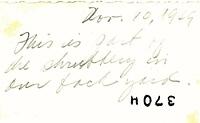 Nov. 10, 1929
This is part of
the shrubbery in
our back yard.
3704